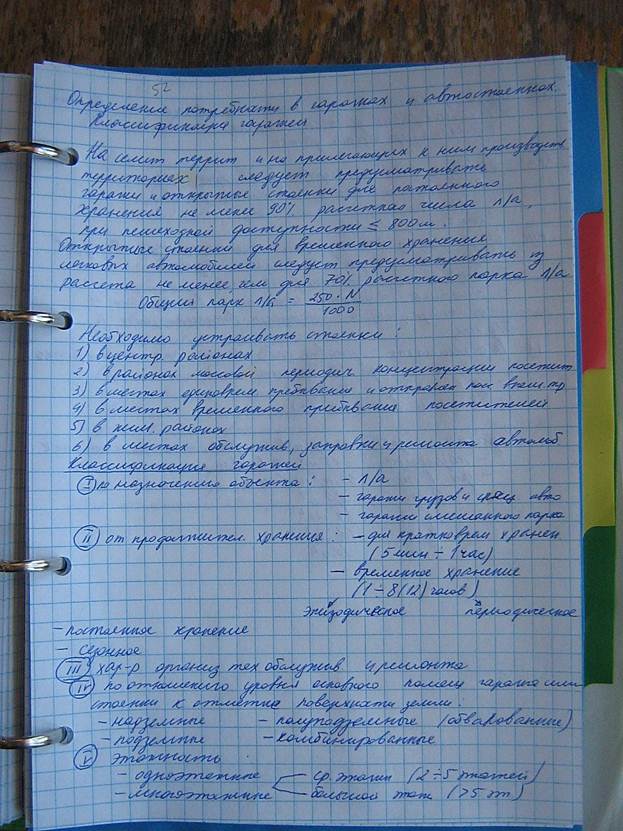 52
Определение потребности в гаражах и автостоянках.
Классификация гаражей
На селит террит и на прилегающих к ним производств
территориях следует предусматривать
гаражи и открытые стоянки для постоянного
хранения не менее 90% расчетного числа л/а,
при пешеходной доступности ≤ 800м.
Открытые стоянки для временного хранения
легковых автомобилей следует предусматривать из
расчета не менее чем для 70% расчетного парка л/а
Общий парк л/а = 250 · N / 1000
Необходимо устраивать стоянки:
1) в центр. районах
2) в районах массовой периодич. концентрации посетит.
3) в местах единоврем пребывания и отправлен
4) в местах временного пребывания посетителей
5) в жил. районах
6) в местах обслужив, заправки и ремонта автомоб
Классификация гаражей
I по назначению объекта: - л/а
- гаражи грузов и специ авто
- гаражи смешанного парка
II от продолжител. хранения: - для кратковрем хранен
(5 мин ÷ 1 час)
- временное хранение
(1 ÷ 8(12) часов)
эпизодическое периодическое
- постоянное хранение
- сезонное
III хар-р организ тех обслужив и ремонта
IV по отношению уровня основного помещ гаража или
стоянки к отметке поверхности земли:
- надземные - полуподземные (обвалованные)
- подземные - комбинированные
V этажность:
- одноэтажные ср. этажн (2÷5 этажей)
- многоэтажные большой этаж (>5 эт)